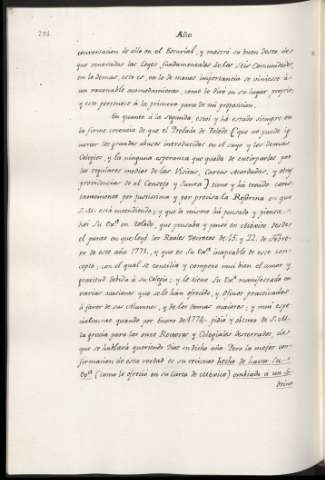 Año
conversacion de ello en el Escurial, y mostró su buen deseo de
que renovadas las Leyes fundamentales de las Seis Comunidades,
en lo demas, esto es, en lo de menos importancia se viniese á
un razonable acomodamiento, como lo diré en su lugar proprio;
y esto pertenece á la primera parte de mi proposicion.
En quanto á la segunda, estoi y he estado siempre en
la firme creencia de que el Prelado de Toledo (que no puede ig-
norar los grandes abusos introducidos en el suyo y los demas
Colegios, y la ninguna esperanza que queda de extirparlos por
los regulares medios de las Visitas, Cartas Acordadas, y otras
providencias de el Consejo y Junta) tiene y há tenido cons-
tantemente por justissima y por precisa la Reforma en que
S. M. está entendiendo; y que lo mismo há pensado y piensa
hoi Su Exª en Toledo, que pensaba y puso en Mexico desde
el punto en que leyó los Reales Decretos de 15, y 22, de Febre-
ro de este año 1771, y que es Su Exª incapable de este con-
cepto, con el qual se concilia y compone mui bien el amor y
gratitud debida á su Colegio; y le tiene Su Exª manifestado en
varias ocasiones que se le hán ofrecido, y oficios practicados
á favor de sus Alumnos, y de los demas maiores, y mui espe-
cialmente quando por Enero de 1774. pidió y obtuvo de S. M.
la gracia para los once Rectores y Colegiales desterrados, de
que se hablará queriendo Dios en dicho año. Pero la mejor con-
firmacion de esta verdad es su reciente hecho de haver Su
Exª (como lo ofreció en su Carta de Mexico) embiado a un So-
brino